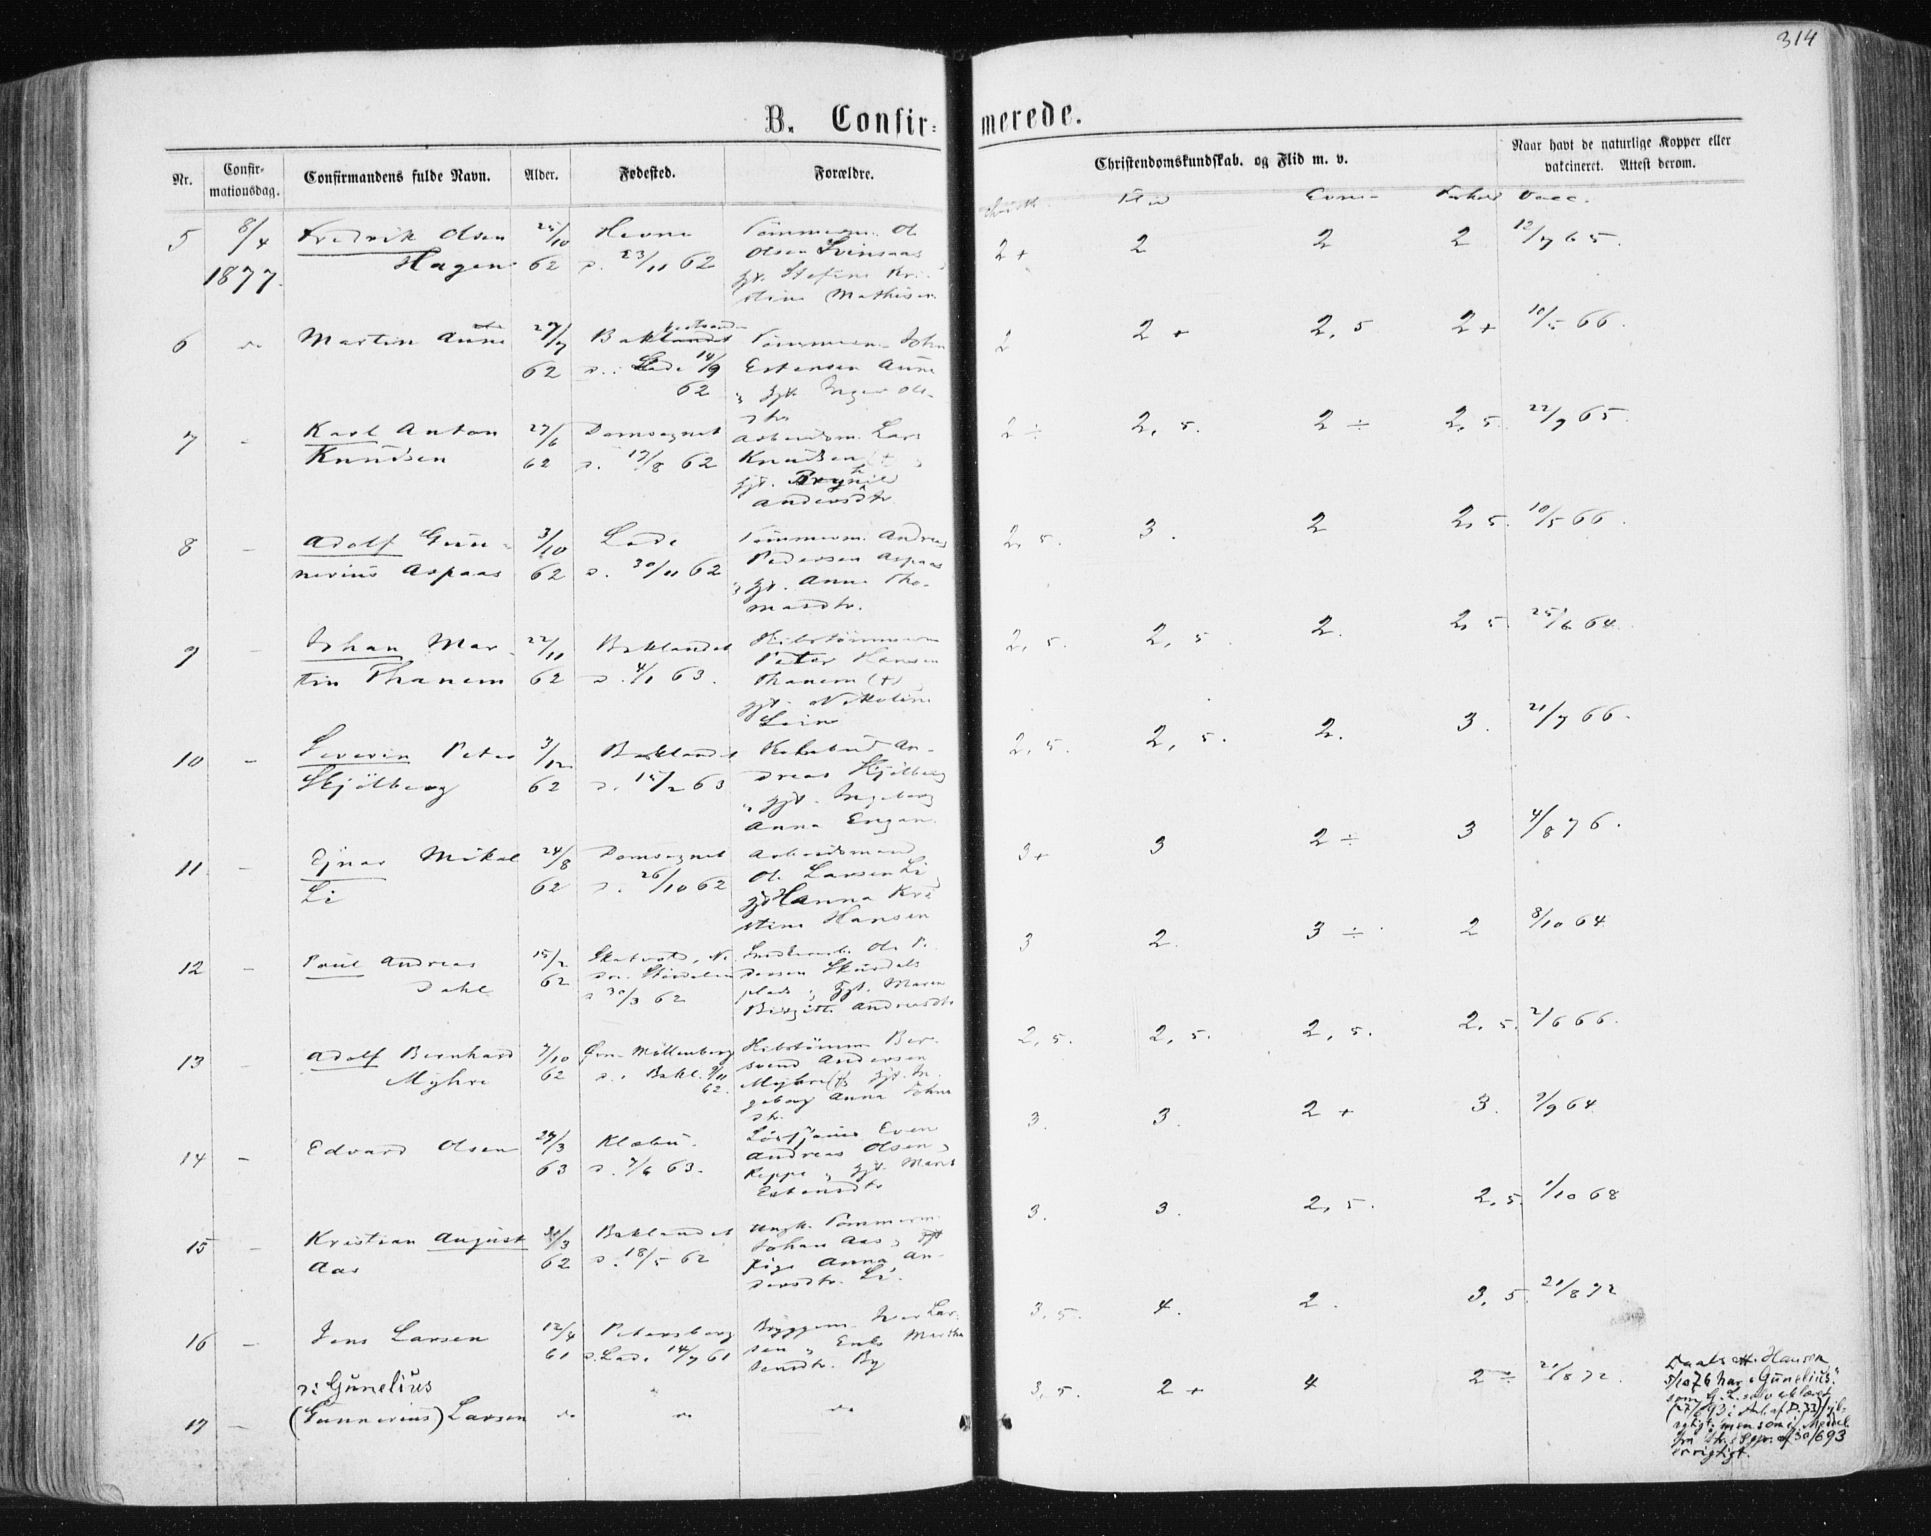 314
B. Confir= merede.
Nr. Confir- mationsdag. Confirmandens fulde Navn. Alder. Fødested. Forældre. Christendomskundskab. og Flid m. v. Naar havt de naturlige Kopper eller vakcineret. Attest derom.
Flid Evne Forhold Vacc.
5 8/4 Fredrik Olsen 25/10 Hevne Tømmerm. Ol. 2+ 2 2 2 12/7 65.
1877. Hagen 62 d. 23/11 62 Olsen Svinsaas
gjt. Stefine Kri-
stine Mathisen
6 do Martin Aune 27/7 Baklandet Tømmerm. John 2 2+ 2,5 2+ 10/5 66.
62 d. : Lade 14/9 Estensen Aune
62 gjt. Inger Ols-
dtr
7 - Karl Anton 27/6 Domsognet Arbeidsm. Lars 2÷ 2,5. 2÷ 2,5. 22/9 65.
Knudsen 62 d. 17/8 62 Knudsen (†)
gjt. Brynild
Andersdtr
8 - Adolf Gun- 3/10 Lade Tømmerm. Andreas 2,5. 3. 2 2,5. 10/5 66.
nerius Aspaas 62 d. 30/11 62 Pedersen Aspaas
gjt. Anne Tho-
masdtr.
9 - Johan Mar- 22/11 Baklandet Skibstømmerm 2,5. 2,5. 2. 2,5 25/6 64.
tin Thanem 62 d. 4/1 63. Peter Hansen
Thanem (†)
gjt. Nikoline
Lein
10 - Severin Peter 3/12 Baklandet An- 2,5. 2,5. 2. 3. 21/7 66.
Skjölberg 62 d. 15/2 63 dreas Skjölberg
gjt. Ingeborg
Anna Engan
11 - Ejnar Mikal 24/8 Domsognet Arbeidsmand 3+ 3 2÷ 3 4/8 76.
Li 62 d. 26/10 62 Ol. Larsen Li
gjt Hanna Kri
stine Hansen
12 - Paul Andreas 15/2 Skatvold, N. Ol. P. 3 2. 3÷. 2 8/10 64
Dahl 62 Stördalen dersen Skurdals
d 30/3 62 plads gjt. Maren
Birgitt. Andreasdtr
13 - Adolf Bernhard 7/10 Övre Möllenberg Skibstömm. Ber- 2,5. 2,5. 2,5. 2,5. 2/6 66.
Myhre 62 d. Bakl. 9/11 svend Andersen
62. Myhre (†) gjt. In-
geborg Anna Johns
dtr.
14 - Edvard Olsen 27/3 Klæbu. Even 3. 3. 2+ 3. 9/9 64
63 d. 7/6 63. Andreas Olsen
Reppe, gjt. Marit
Estensdtr
15 - Kristian August 31/3 Baklandet Ungk. Tømmerm. 3. 3. 2,5. 2,5. 1/10 68
Aas 62 d. 18/5 62 Johan Aas,
Pige Anna An-
dersdtr. Li.
16 - Jens Larsen 12/4 Petersborg Bryggem. Iver Lar- 3,5. 4. 2. 3,5. 21/8 72
61 d. Lade 14/7 61 sen, Enke Martha
Jensdtr. By
ɔ: Gunelius
17 (Gunnerius) Larsen do do do 3,5. 2+ 4 2÷ 21/8 72.
Daabsatt. Hansen
5/10 76 har "Gunelius"
som G. L. selv erklæret